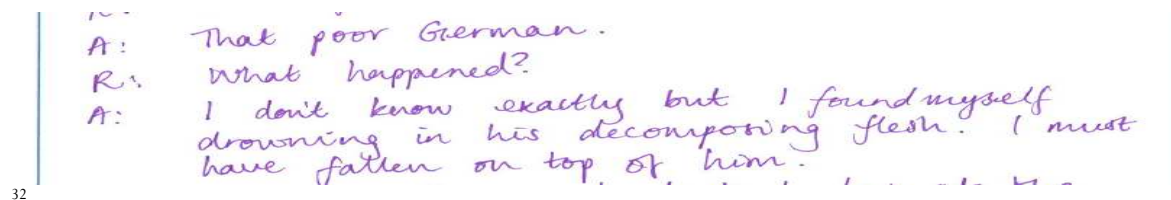 A: That poor German.
R: What happened?
A: I don't know exactly but I found myself
drowning in his decomposing flesh. I must
have fallen on top of him.
32